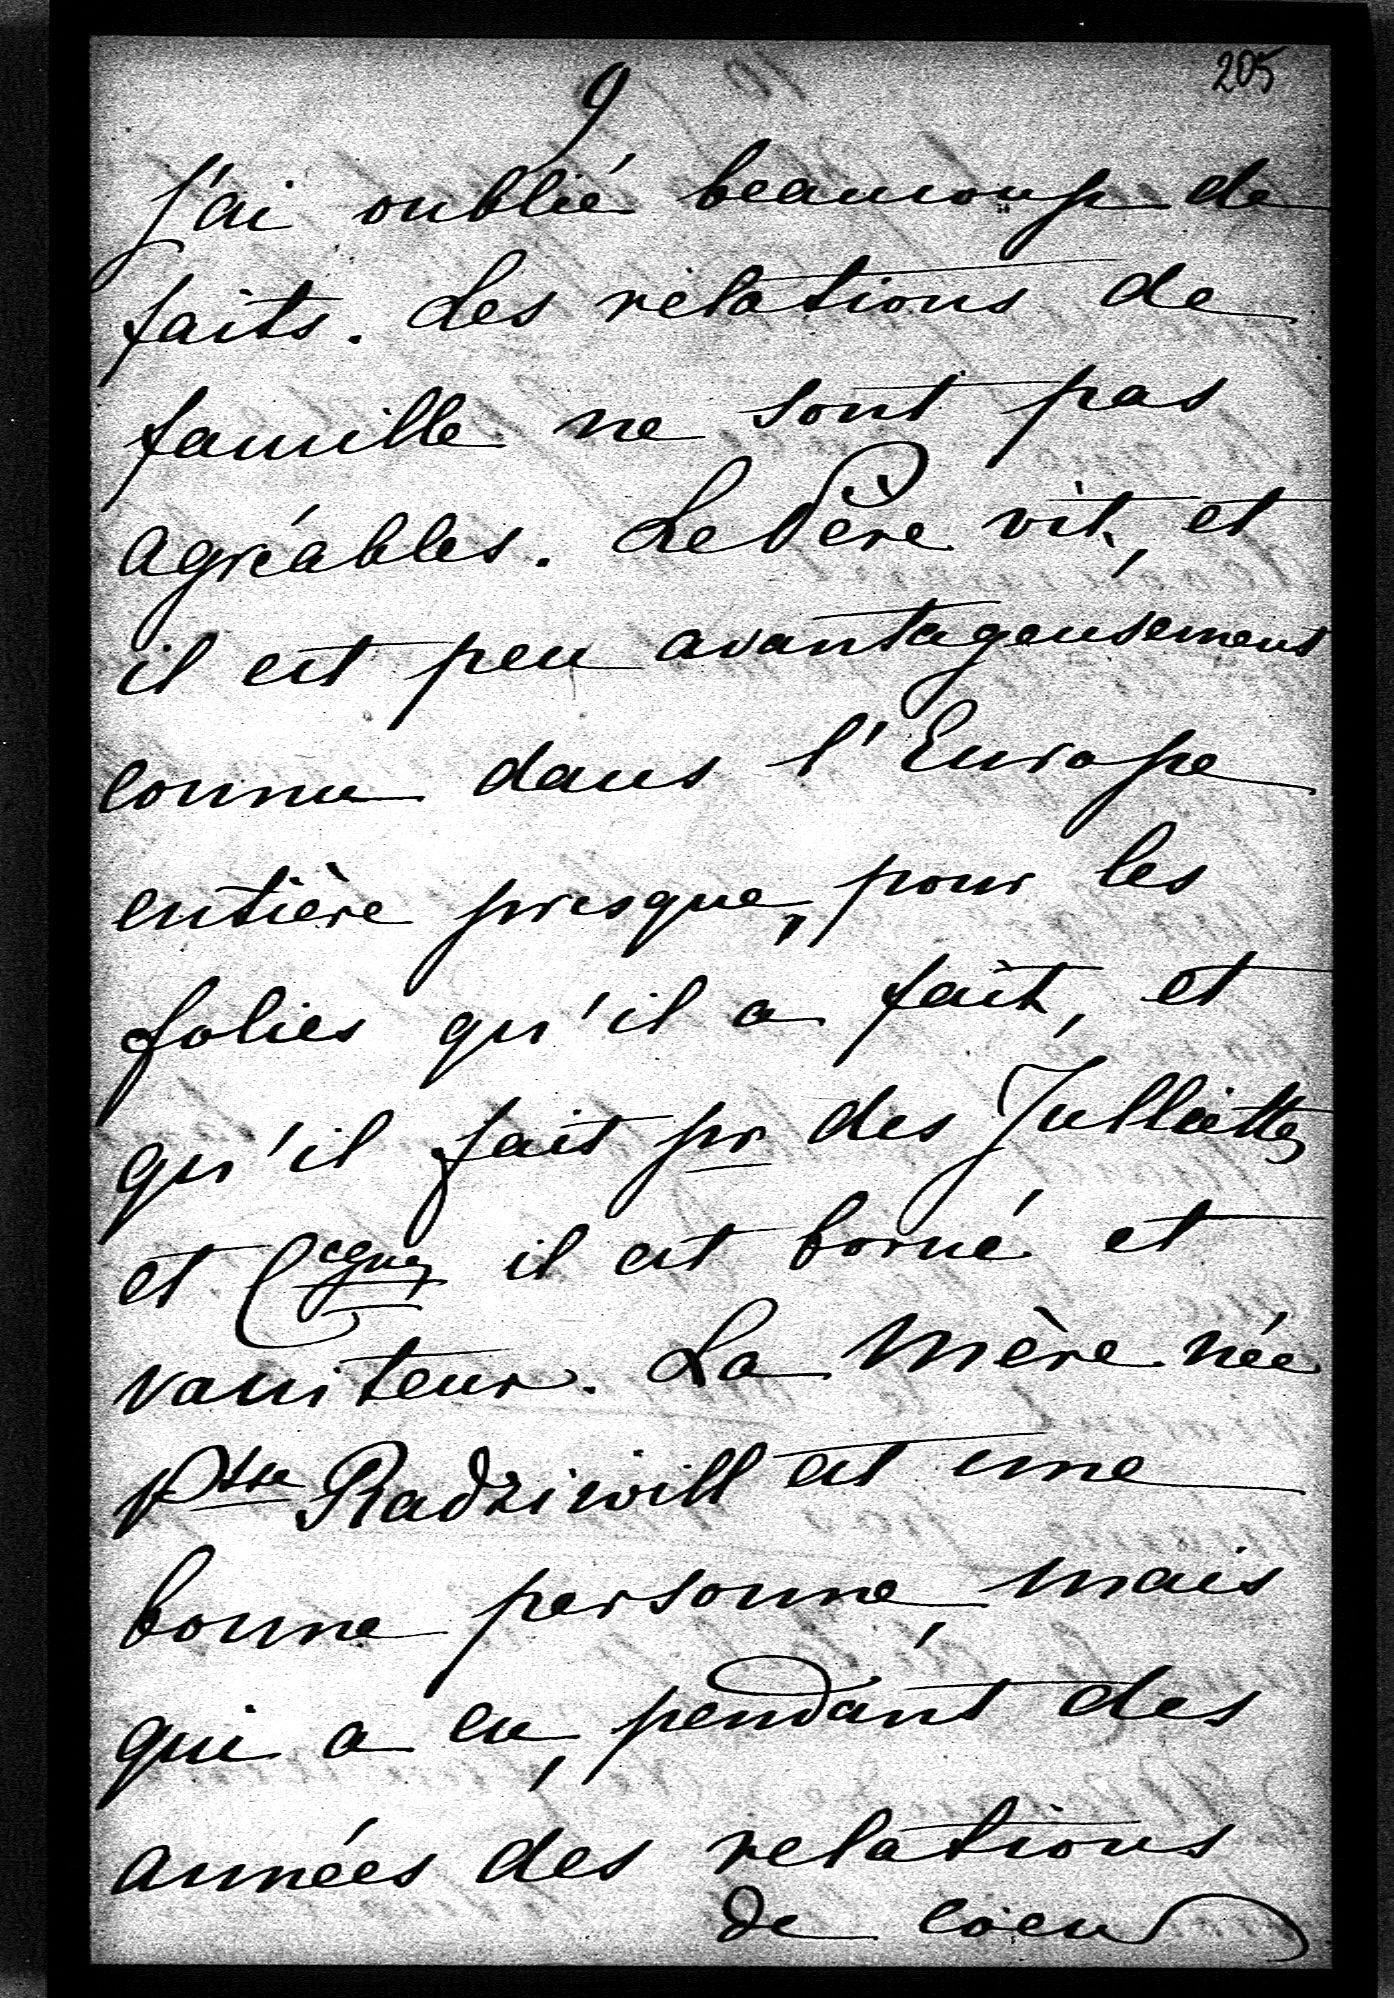 205
9
J'ai oublié beaucoup de
faits. Les relations de
famille ne sont pas
agréables. Le Père vit, et
il est peu avantageusement
connu dans l'Europe
entière presque, pour les
folies qu'il a fait, et
qu'il fait pr des Julliettes
et Cegnie, il est borné et
vaniteux. La Mère née
Psse Radziwill est une
bonne personne, mais
qui a eu, pendant des
années des relations
de coeur